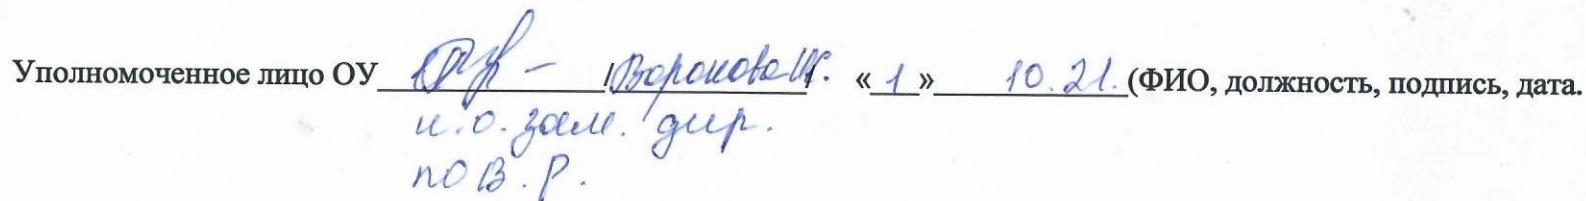 Уполномоченное лицо ОУ ____________/Воронова / «1» 10.21. (ФИО, должность, подпись, дата.
и.о. зам. дир.
по В.Р.